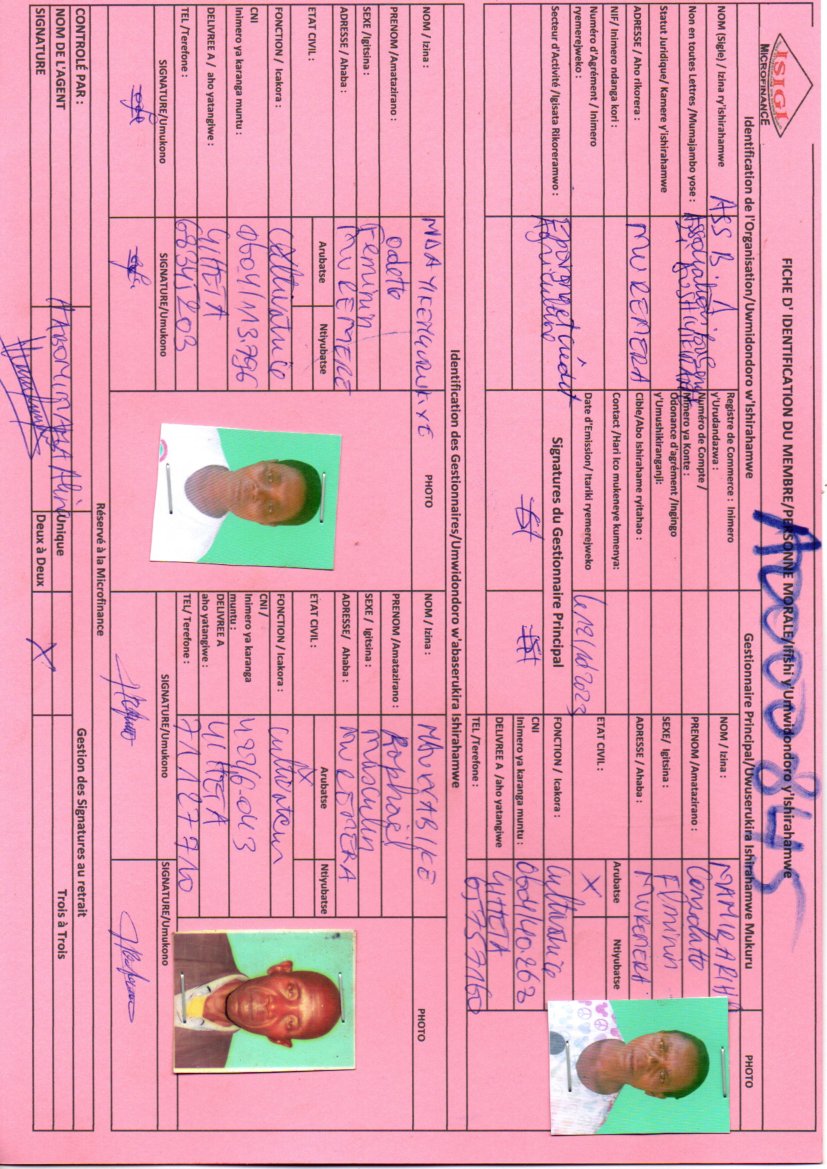 ISIGI
MICROFINANCE
FICHE D' IDENTIFICATION DU MEMBRE/PERSONNE MORALE/Ifishi y'Umwidondoro y'Ishirahamwe
A0000845
Identification de l'Organisation/Uwmidondoro w'Ishirahamwe
Gestionnaire Principal/Uwuserukira Ishirahamwe Mukuru
PHOTO
NOM (Sigle) / Izina ry'ishirahamwe
ASS B. A
Registre de Commerce : Inimero y'Urudandazwa :
NOM / Izina :
Non en toutes Lettres /Mumajambo yose :
Association
Numéro de Compte / Nimero ya Konte :
PRENOM /Amatazirano :
Consolate
Statut Juridique/ Kamere y'ishirahamwe
Odonance d'agrément /Ingingo y'Umushikiranganji:
SEXE/ Igitsina :
Féminin
ADRESSE / Aho rikorera :
MUREMERA
Cible/Abo Ishirahame ryitaho :
ADRESSE / Ahaba :
MUREMERA
NIF/ Inimero ndanga kori :
Contact /Hari Ico mukeneye kumenya:
ETAT CIVIL :
Arubatse
Ntiyubatse
X
Numéro d'Agrément / Inimero ryemerejweko :
Date d'Emission/ Itariki ryemerejweko
FONCTION / Icakora :
Cultivatrice
Secteur d'Activité /Igisata Rikoreramwo :
Epargne et crédit
Signatures du Gestionnaire Principal
CNI
Inimero ya karanga muntu :
DELIVREE A /aho yatangiwe
GITHETA
TEL /Terefone :
Identification des Gestionnaires/Umwidondoro w'abaserukira Ishirahamwe
NOM / Izina :
NDAYIKENGURUKIYE
PHOTO
NOM / Izina :
PHOTO
PRENOM /Amatazirano :
odette
PRENOM /Amatazirano :
SEXE /Igitsina :
Feminin
SEXE / Igitsina :
Masculin
ADRESSE / Ahaba :
MUREMERE
ADRESSE/ Ahaba :
MUREMERA
ETAT CIVIL :
Arubatse
Ntiyubatse
ETAT CIVIL :
Arubatse
Ntiyubatse
X
FONCTION / Icakora :
Cultivatrice
FONCTION / Icakora :
Cultivateur
CNI
Inimero ya karanga muntu :
0604/113.796
CNI /
Inimero ya karanga muntu :
DELIVREE A / aho yatangiwe :
GITHETA
DELIVREE A
aho yatangiwe :
GITHETA
TEL /Terefone :
68345203
TEL/ Terefone :
71127710
SIGNATURE/Umukono
SIGNATURE/Umukono
SIGNATURE/Umukono
SIGNATURE/Umukono
Réservé à la Microfinance
CONTROLÉ PAR :
Gestion des Signatures au retrait
NOM DE L'AGENT
Unique
Trois à Trois
SIGNATURE
Deux à Deux
X